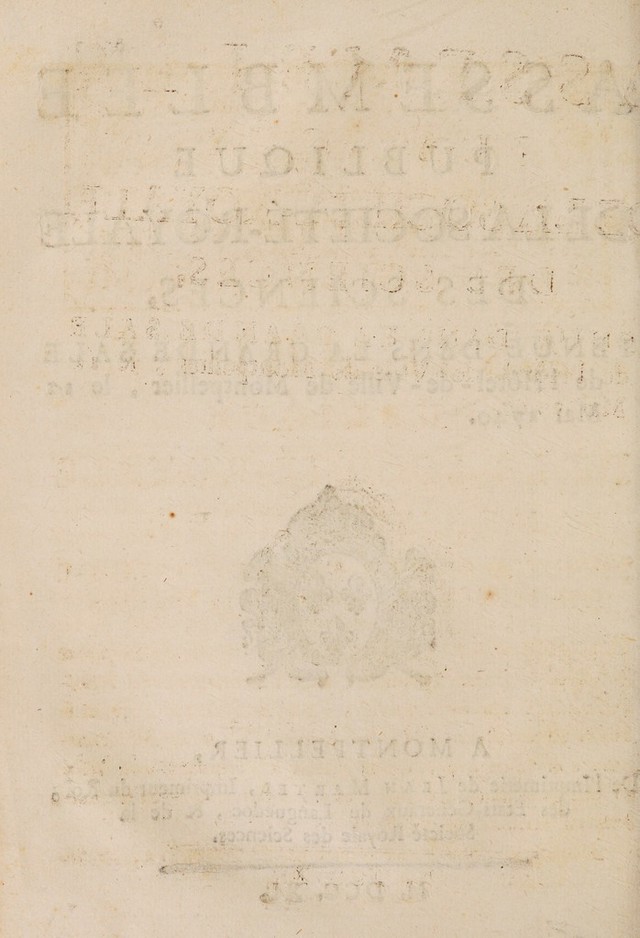 ASSEMBLÉE
PUBLIQUE
DE LA SOCIETE-ROYALE
DES SCIENCES,
TENUE DANS LA GRANDE SALE
de l'Hôtel-de-Ville de Montpellier, le
Mai 1740.
A MONTPELLIER,
De l'Imprimerie de JEAN MARTEL, Imprimeur du Roy,
des Etats-Generaux du Languedoc, & de la
Société Royale des Sciences.
M. DCC. XL